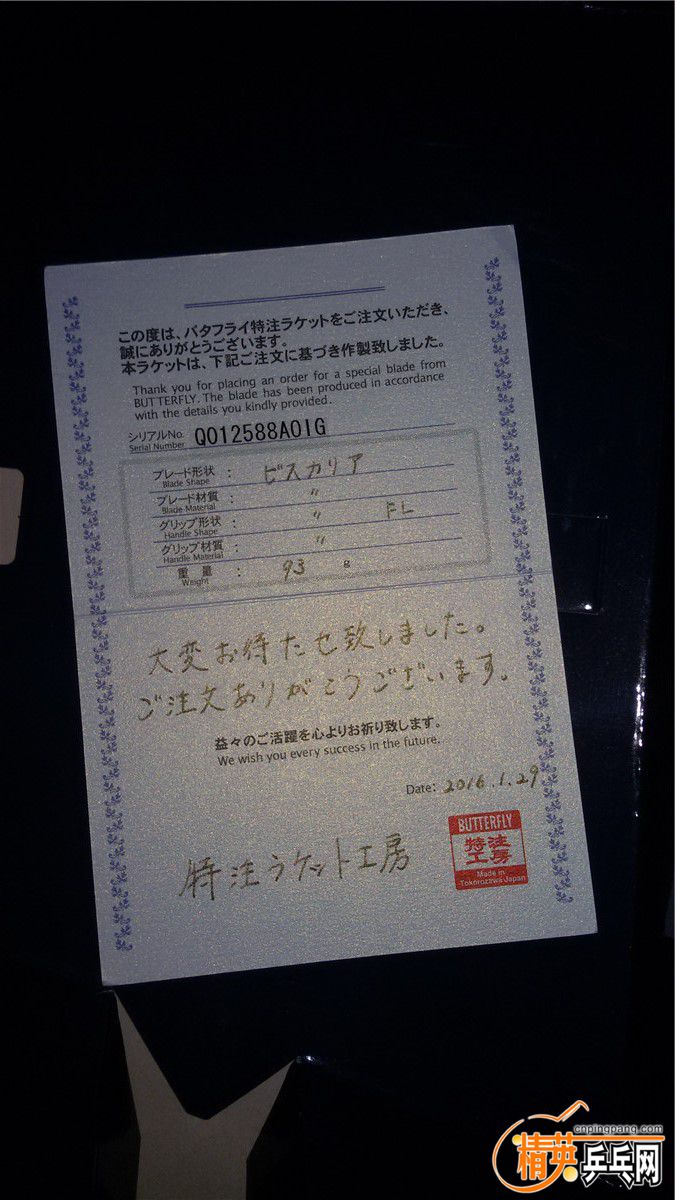 この度は、バタフライ特注ラケットをご注文いただき、
誠にありがとうございます。
本ラケットは、下記ご注文に基づき作製致しました。
Thank you for placing an order for a special blade from
BUTTERFLY. The blade has been produced in accordance
with the details you kindly provided.
シリアルNo. Q012588A01G
Serial Number
ブレード形状 : ビスカリア
Blade Shape
ブレード材質 : 〃
Blade Material
グリップ形状 : 〃 FL
Handle Shape
グリップ材質 : 〃
Handle Material
重量 : 93 g
Weight
大変お待たせ致しました。
ご注文ありがとうございます。
益々のご活躍を心よりお祈り致します。
We wish you every success in the future.
Date: 2016.1.29
BUTTERFLY
特注
工房
Made in
Tokorozawa Japan
特注ラケット工房
cnpingpang.com
精英乒乓网